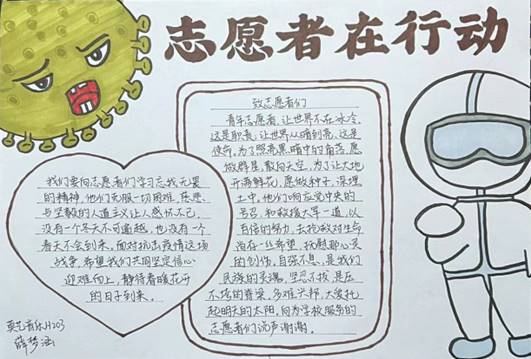 志愿者在行动
致志愿者们
青年志愿者,让世界不在冰冷
这是职责,让世界从暗到亮,这是
使命,为了照亮黑暗中的角落,愿
做群星,散向天空,为了让大地
开满鲜花,愿做种子,深埋
土中,他们响应党中央的
号召,和救援大军一道,以
自得的努力,去抢救对生命
尚存一丝希望,抚慰那心灵
的创伤,自强不息,是我们
民族的灵魂,坚忍不拔,是压
不垮的脊梁,多难兴邦,大爱托
起明天的太阳,向为学校服务的
志愿者们说声谢谢。
我们要向志愿者们学习忘我无畏
的精神,他们克服一切困难,慈悲
与坚毅的人道主义让人感怀不已,
没有一个冬天不可逾越,也没有一个
春天不会到来,面对抗击疫情这项
战争,希望我们共同坚定信心
迎难而上,静待春暖花开
的日子到来。
音乐H203
薛梦涵